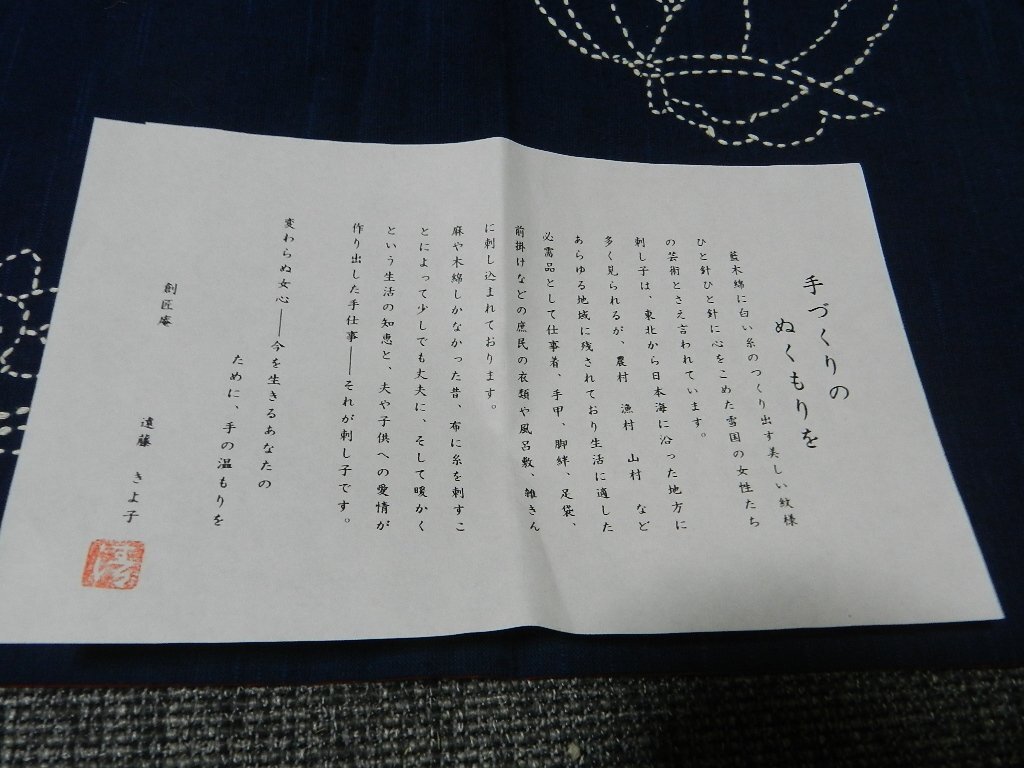 手づくりの
ぬくもりを
藍木綿に白い糸のつくり出す美しい紋様
ひと針ひと針に心をこめた雪国の女性たち
の芸術とさえ言われています。
刺し子は、東北から日本海に沿った地方に
多く見られるが、農村 漁村 山村 など
あらゆる地域に残されており生活に適した
必需品として仕事着、手甲、脚絆、足袋、
前掛けなどの庶民の衣類や風呂敷、雑きん
に刺し込まれております。
麻や木綿しかなかった昔、布に糸を刺すこ
とによって少しでも丈夫に、そして暖かく
という生活の知恵と、夫や子供への愛情が
作り出した手仕事――それが刺し子です。
変わらぬ女心――今を生きるあなたの
ために、手の温もりを
創匠庵
遠藤 きよ子